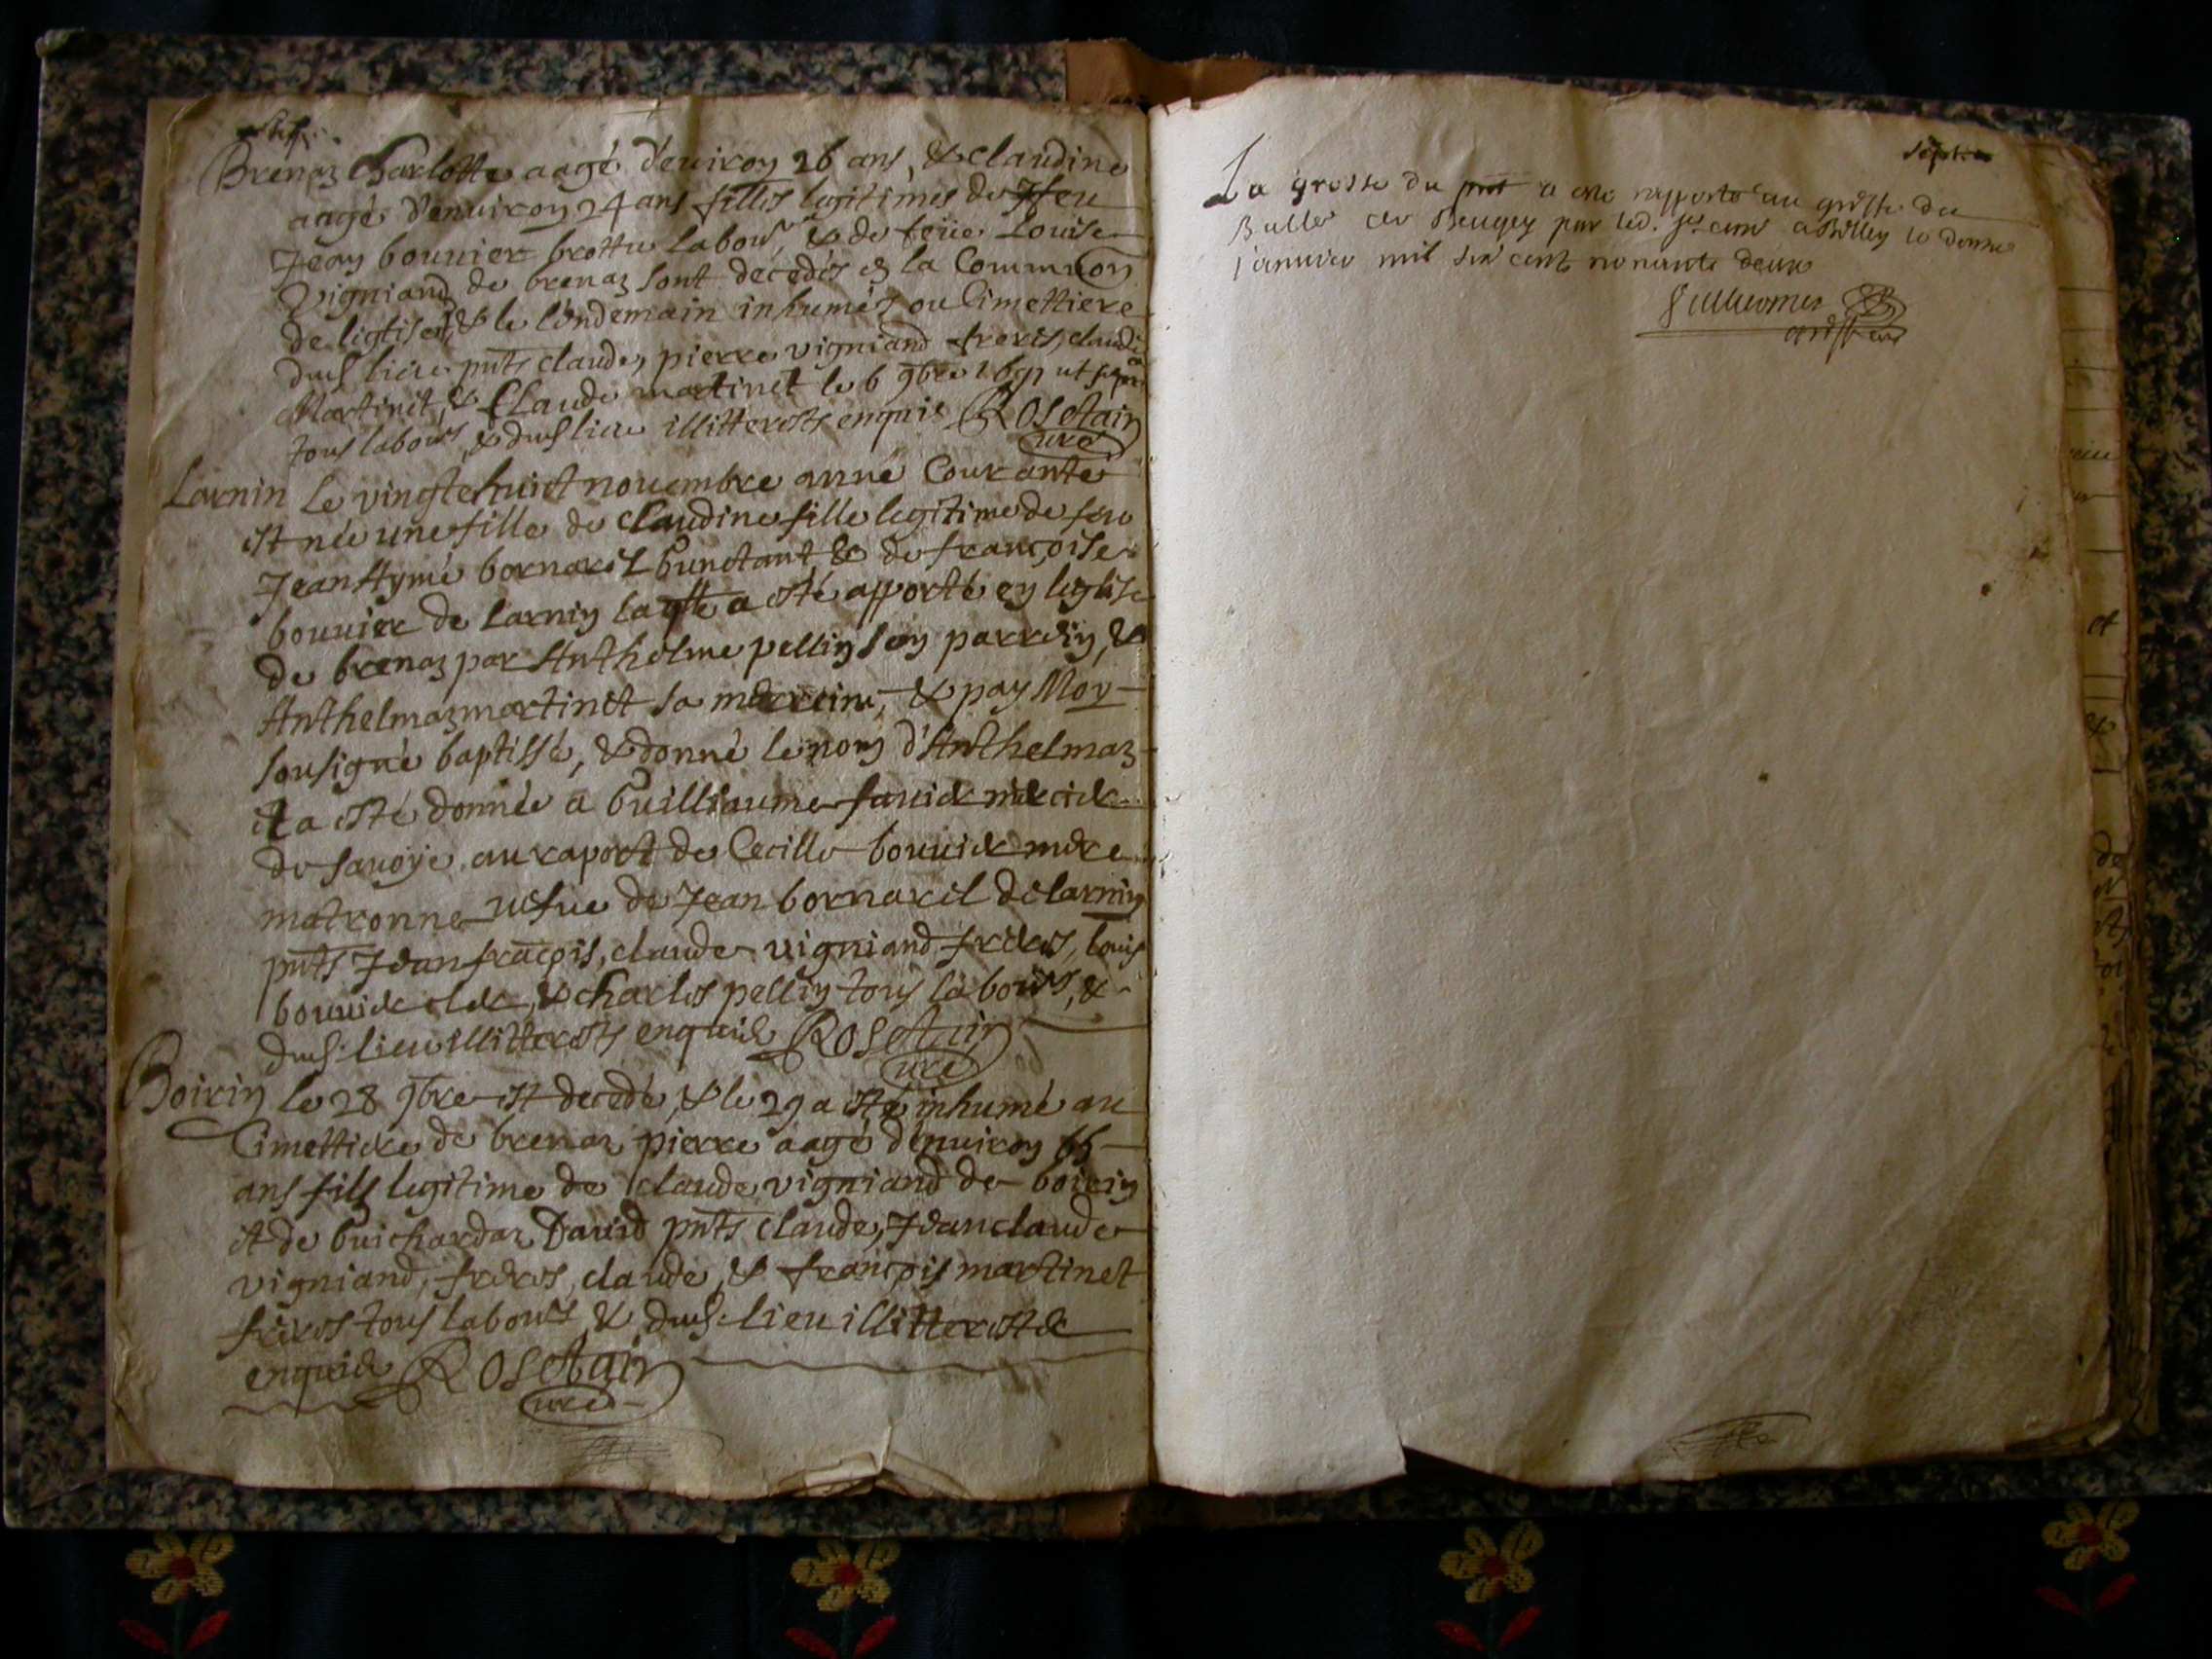 Brenaz Charlotte aagé d'enuiron 26 ans, & claudine
aagés d'enuiron 24 ans filles legitimes de feu
Jean bouuier brottu labour, & de feüe Louise
Vigniand de brenaz sont décedés en la Commuõn
de leglise, & le lendemain inhumés ou Cimettiere
dud lieu pnts claude, pierre vigniand freres, claude
Martinet, & Claude martinet le 6 9bre 1691 ut supra
tous labours, & dud lieu illitterests enquis Rosetain
curé
Larnin le vingtehuict nouembre anné Courante
est née une fille de claudine fille legitime de feu
Jean Aymé bornarel & de françoise
bouuier de Larnin laqlle a esté apporté en leglise
de brenaz par Anthelme pellin son parrein, &
Anthelmaz martinet sa marreine, & pay Moy
sousigné baptissé, & donné le nom d'Anthelmaz
et a esté donnée a Guilliaume fauier mercier
de sauoye au raport de Cecille bouuier mere
matronne uefue de Jean bornarel de larnin
pnts Jean fraçois, claude vigniand freres, louis
bouuier clerc, & charles pellin tous labours, &
dud. lieu illitterests enquis Rosetain
curé
Boirin le 28 9bre est decedé, & le 29 a esté inhumé au
Cimettiere de brenaz pierre aagé d'enuiron 65
ans fils legitime de claude vigniand de boirin
et de Guichardaz Dauid pnts claude, Jean claude
vigniand, freres, claude, & françois martinet
freres tous labours & dud. lieu illitterest &
enquis Rosetain
curé
septie
La grosse du pnt a esté rapporté au greffe du
Balle de Beugey par led. sr curé a Belley le
januier mil six cent nonante deux
greffier